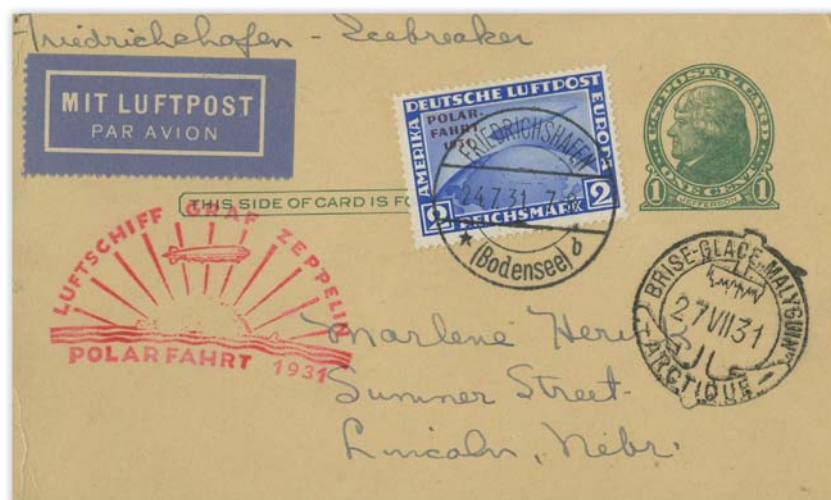 Friedrichshafen - Icebreaker
MIT LUFTPOST
PAR AVION
DEUTSCHE LUFTPOST
EUROPA
AMERIKA
POLAR-
FAHRT
1931
2 REICHSMARK 2
FRIEDRICHSHAFEN
24.7.31. 7-8
★ (Bodensee) b
U·S·POSTAL CARD
1 ONE CENT 1
JEFFERSON
THIS SIDE OF CARD IS FO
LUFTSCHIFF GRAF ZEPPELIN
POLARFAHRT 1931
BRISE-GLACE „MALYGUIN"
27 VII 31
ARCTIQUE
Marlene
Sumner Street
Lincoln, Nebr.